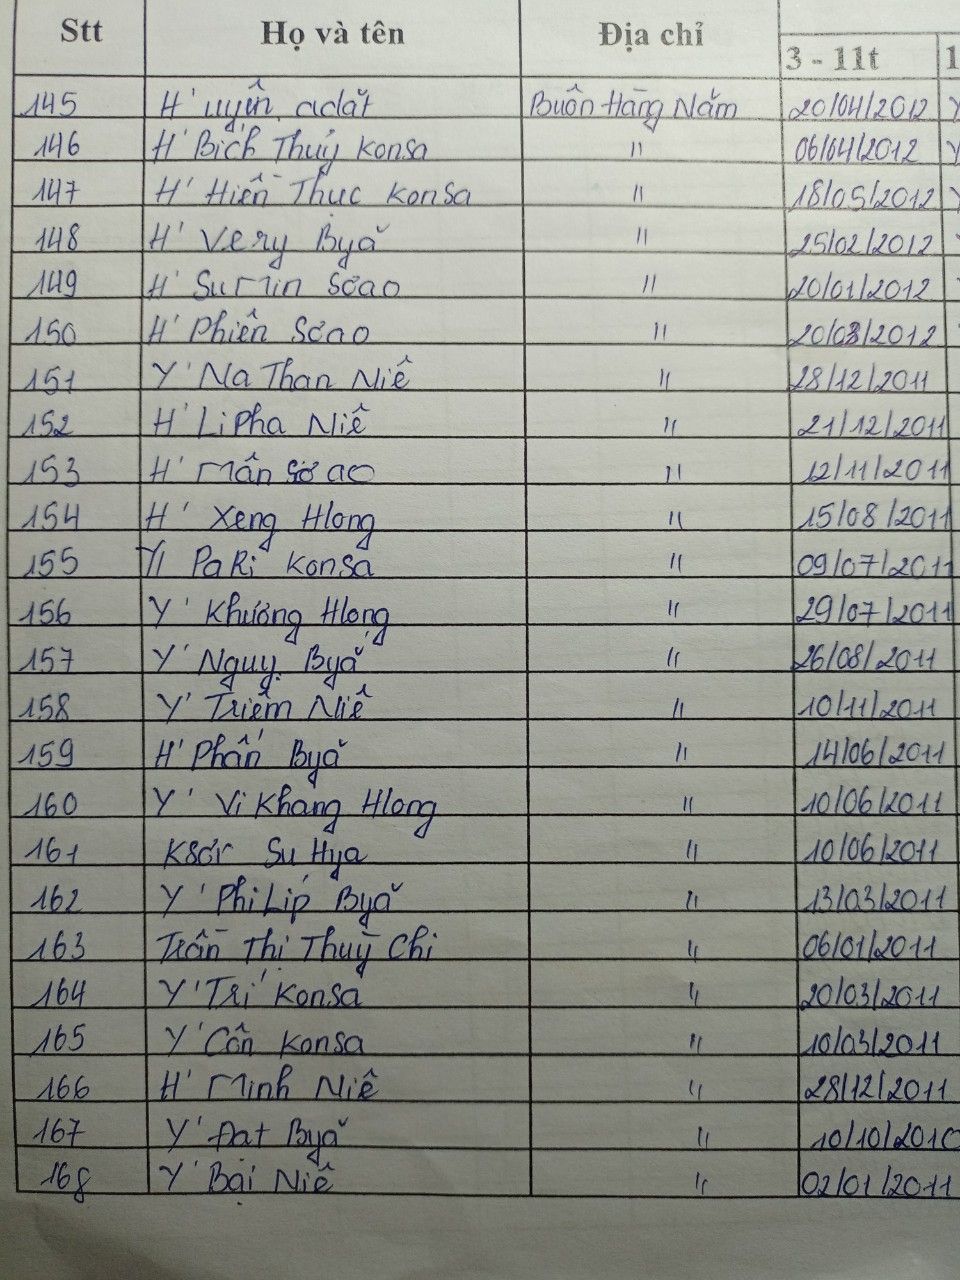 Stt Họ và tên Địa chỉ
3 - 11t 1
145 H' uyên adăt Buôn Hăng Năm 20/04/2012 Y
146 H' Bích Thuỷ Konsa " 06/04/2012 Y
147 H' Hiền Thục Konsa " 18/05/2012 Y
148 H' Very Byă " 25/02/2012
149 H' Su Min Sơao " 20/01/2012
150 H' Phiên Sơao " 20/03/2012
151 Y' Na Than Niê " 28/12/2011
152 H' LiPha Niê " 21/12/2011
153 H' Mân Sơ ao " 12/11/2011
154 H' Xeng Hlong " 15/08/2011
155 PaRi Konsa " 09/07/2011
156 Y' Khương Hlong " 29/07/2011
157 Y' Nguy Byă " 26/08/2011
158 Y' Triêm Niê " 10/11/2011
159 H' Phấn Byă " 14/06/2011
160 Y' Vi Khang Hlong " 10/06/2011
161 Ksơr Su Hya " 10/06/2011
162 Y' PhiLíp Byă " 13/03/2011
163 Trần Thị Thuỳ Chi " 06/01/2011
164 Y' Trí Konsa " 20/03/2011
165 Y' Côn Konsa " 10/03/2011
166 H' Minh Niê " 28/12/2011
167 Y' Đạt Byă " 10/10/2010
168 Y' Bại Niê " 02/01/2011